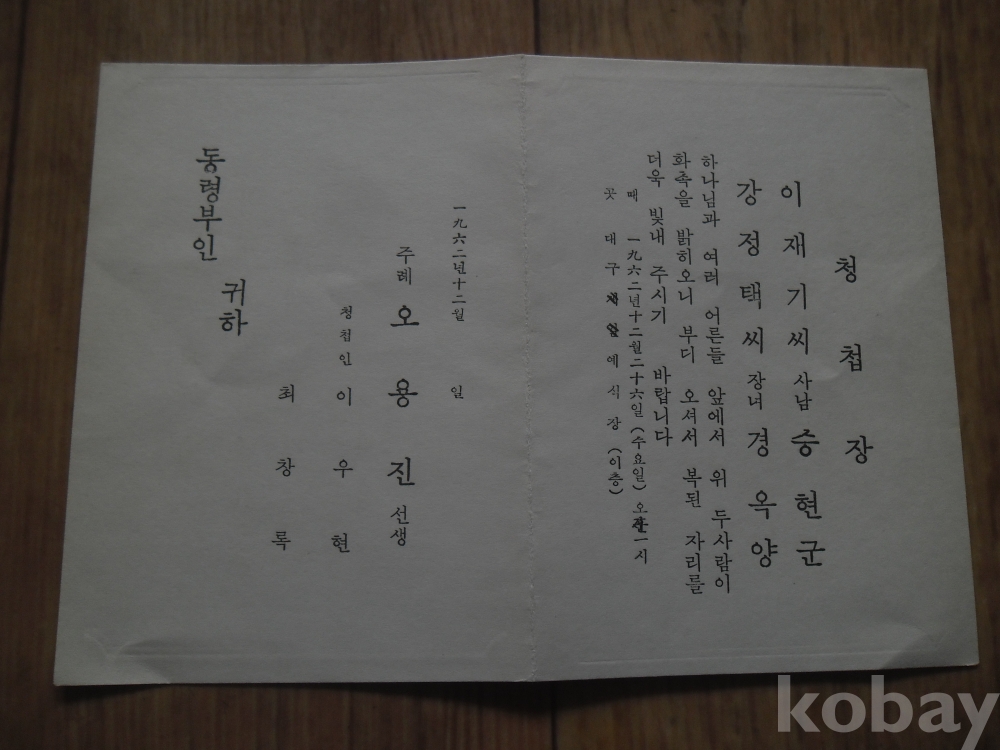 청첩장
이재기씨 사남 증현군
강정택씨 장녀 경옥양
하나님과 여러 어른들 앞에서 위 두사람이
화촉을 밝히오니 부디 오셔서 복된 자리를
더욱 빛내 주시기 바랍니다
때 一九六二년十二월二十六일 (수요일) 오 一시
곳 대구 예식장 (이층)
一九六二년十二월 일
주례 오용진 선생
청첩인 이우현
최창록
동령부인
귀하
kobay